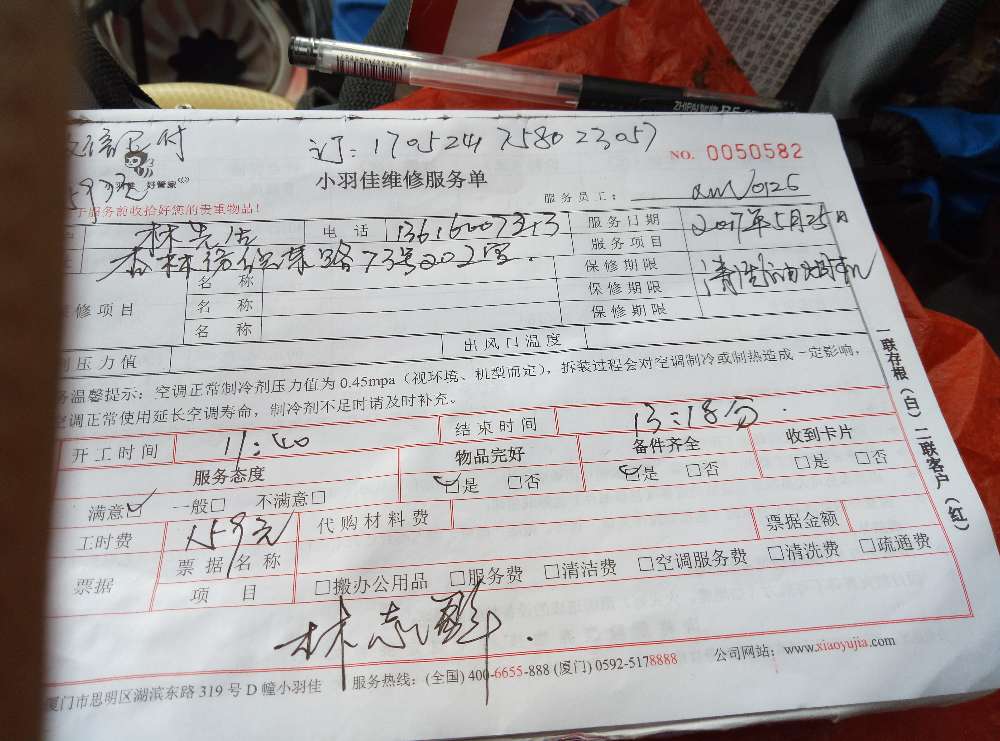 ZHIPAI
微信已付
订：170524758023057
59元
小羽佳 好管家
NO. 0050582
小羽佳维修服务单
服务员工：am10125
于服务前收拾好您的贵重物品！
林先生 电话 服务日期 2017年5月25日
73号202室 服务项目 清洗油烟机
修项目 名称 保修期限
名称 保修期限
名称 保修期限
压力值 出风口温度
务温馨提示：空调正常制冷剂压力值为 0.45mpa（视环境、机型而定），拆装过程会对空调制冷或制热造成一定影响，
空调正常使用延长空调寿命，制冷剂不足时请及时补充。
开工时间 11:40 结束时间 13:18分
服务态度 物品完好 备件齐全 收到卡片
满意☑ 一般□ 不满意□ ☑是 □否 ☑是 □否 □是 □否
工时费 159元 代购材料费 票据金额
票据 票据名称 □搬办公用品 □服务费 □清洁费 □空调服务费 □清洗费 □疏通费
项目
林志
厦门市思明区湖滨东路 319 号 D 幢小羽佳 服务热线：(全国) 400-6655-888 (厦门) 0592-5178888 公司网站：www.xiaoyujia.com
一联存根（白）二联客户（红）